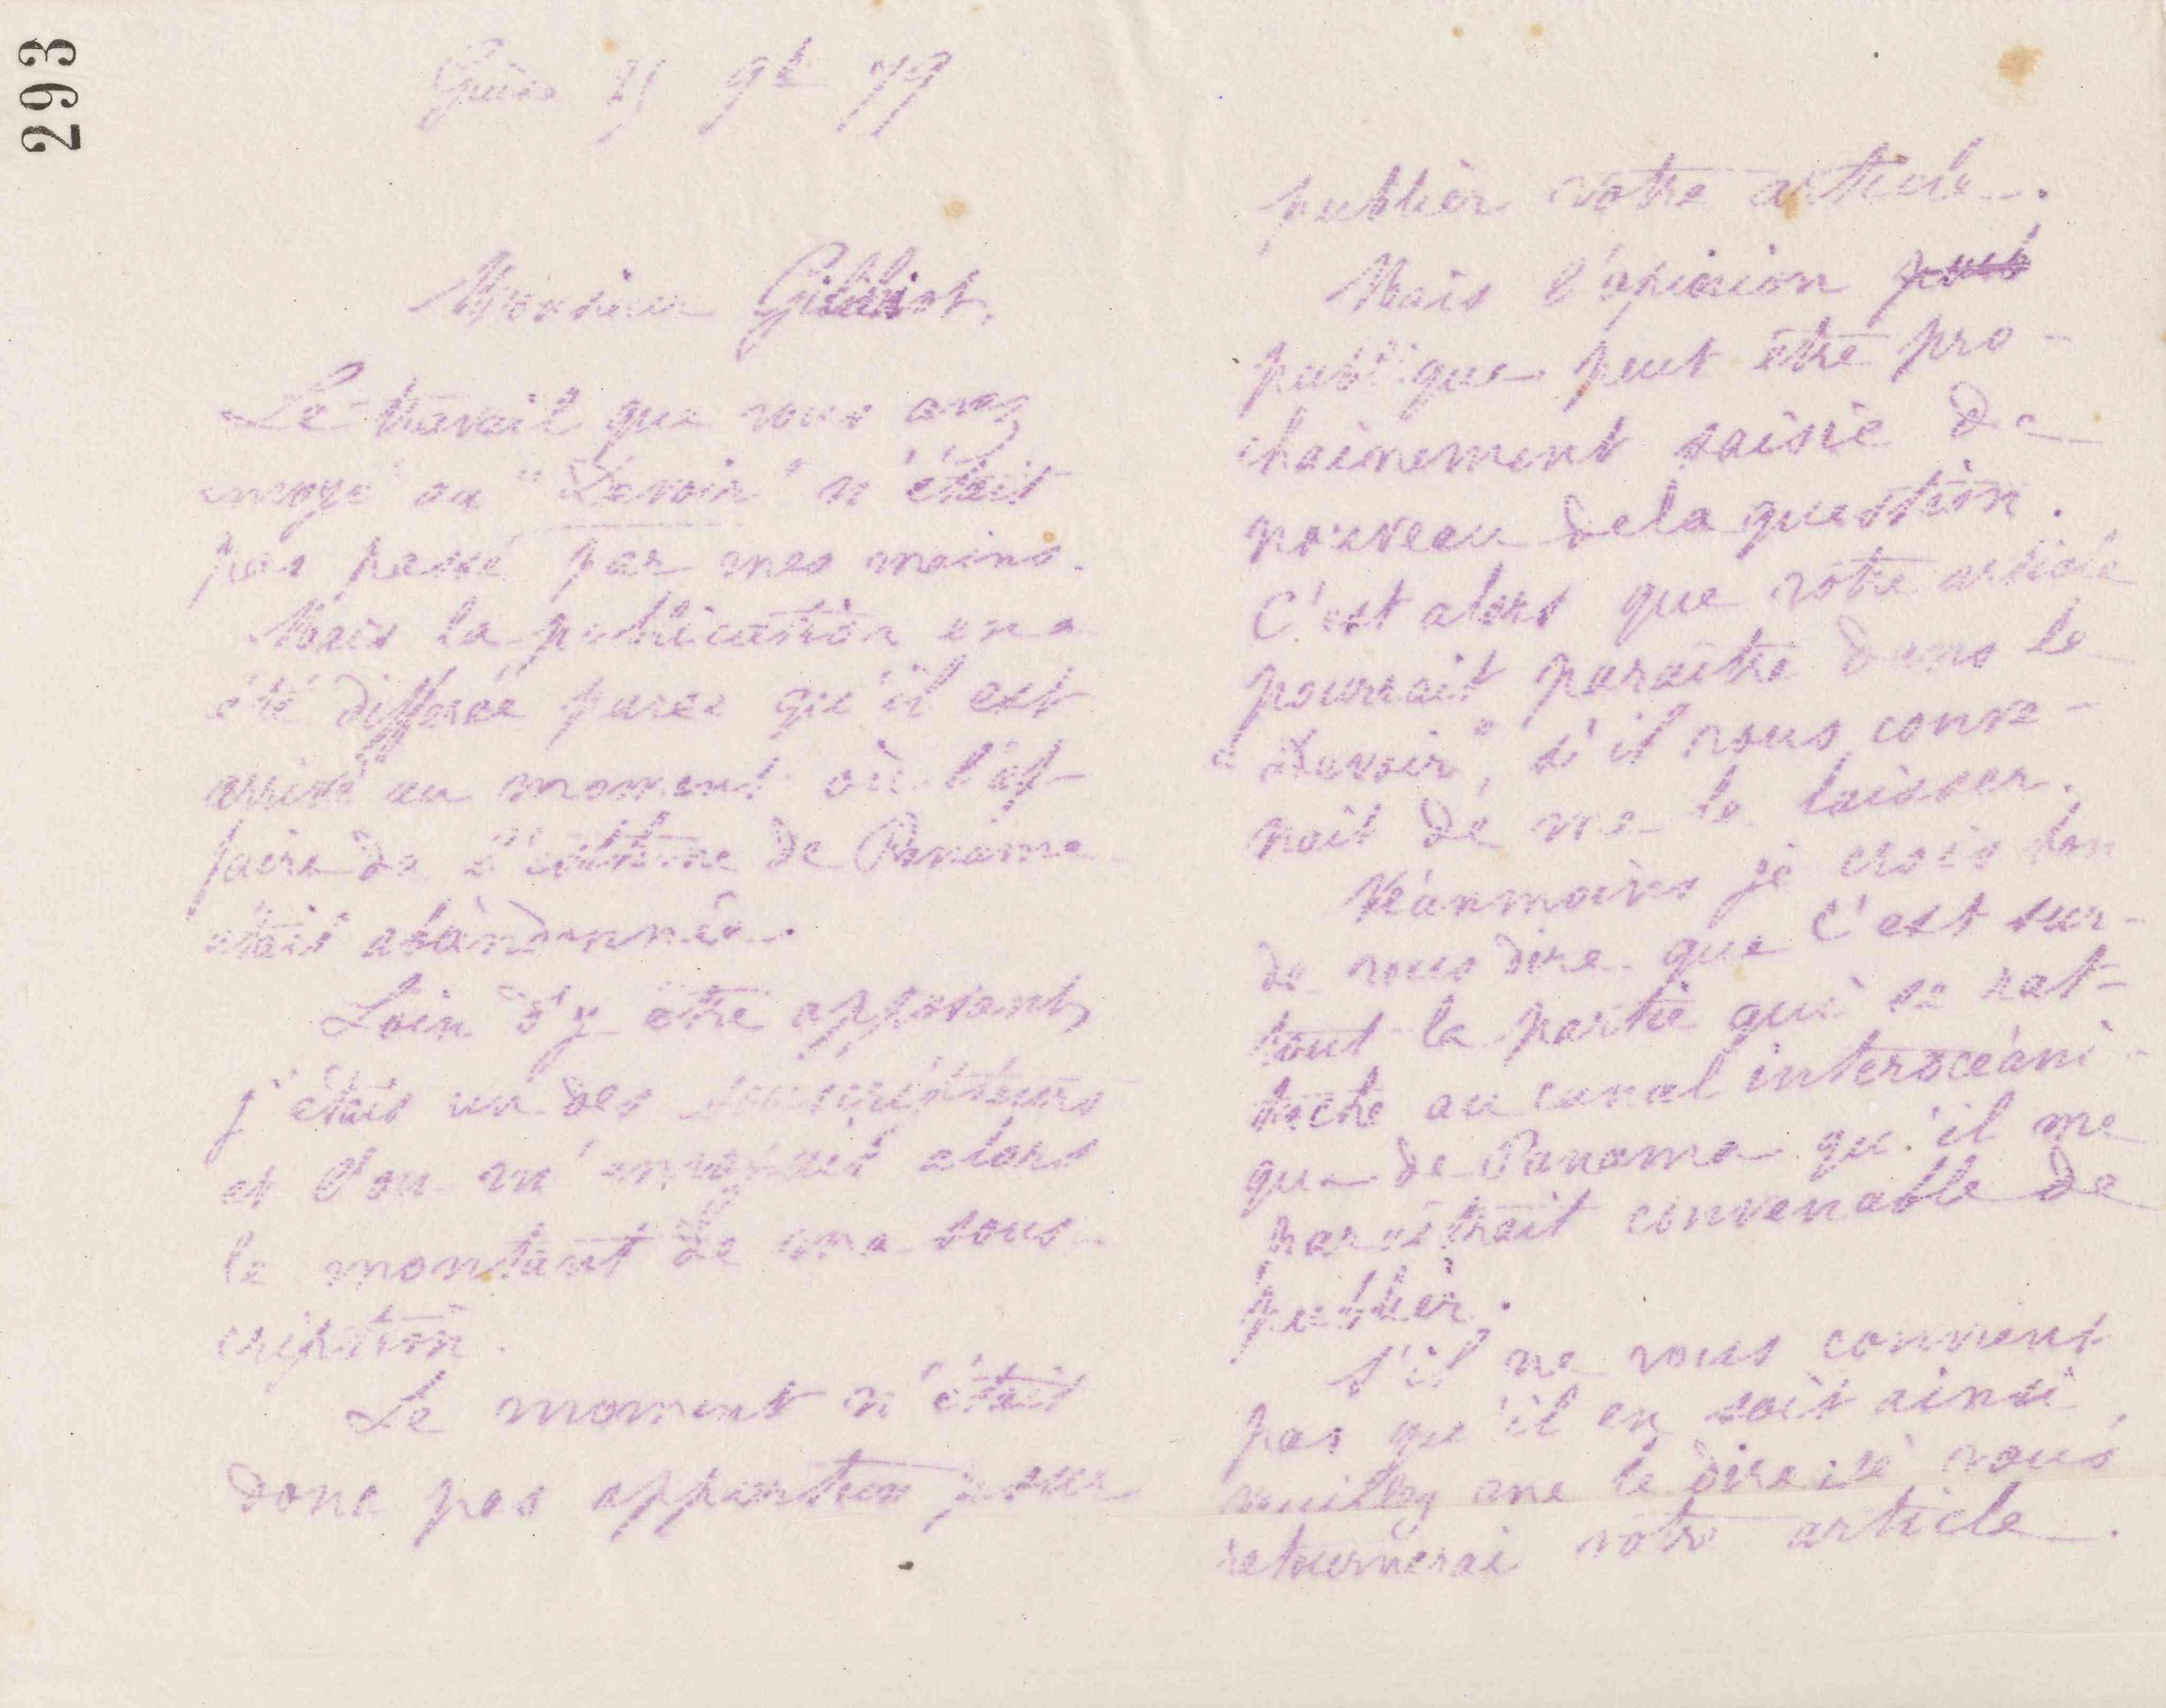 293
Guise 25 9b 79
Monsieur
Le travail que vous avez
envoyé au "Devoir" n'était
pas passé par mes mains.
Mais la publication en a
été différée parce qu'il est
arrivé au moment où l'af-
faire de l'isthme de Panama
était abandonnée.
Loin d'y être opposant,
j'étais un des souscripteurs
et l'on m'envoyait alors
le montant de ma sous-
cription.
Le moment n'était
donc pas opportun pour
publier votre article.
Mais l'opinion
publique peut être pro-
chainement saisie de
nouveau de la question.
C'est alors que votre article
pourrait paraître dans le
"Devoir", s'il vous conve-
nait de me le laisser.
Néanmoins je crois bon
de vous dire que c'est sur-
tout la partie qui se rat-
tache au canal interocéani-
que de Panama qu'il me
paraîtrait convenable de
publier.
S'il ne vous convient
pas qu'il en soit ainsi,
veuillez me le dire; je vous
retournerai votre article.